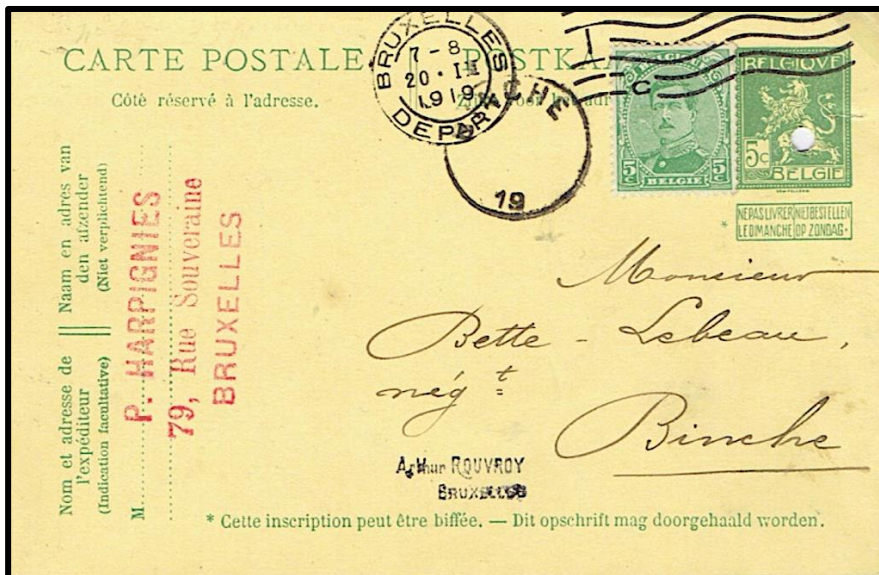 CARTE POSTALE
POSTKA
Côté réservé à l'adresse.
BRUXELLES
7-8
20·III
1919
DEPART
CHE
19
BELGIE
5c 5c
BELGIQUE
5c
BELGIE
NE PAS LIVRER LE DIMANCHE
NIET BESTELLEN OP ZONDAG.
Nom et adresse de l'expéditeur
(Indication facultative)
Naam en adres van den afzender
(Niet verplichtend)
M
P. HARPIGNIES
79, Rue Souveraine
BRUXELLES
Monsieur
Bette - Lebeau,
nég t
Binche
Arthur ROUVROY
BRUXELLES
* Cette inscription peut être biffée. — Dit opschrift mag doorgehaald worden.